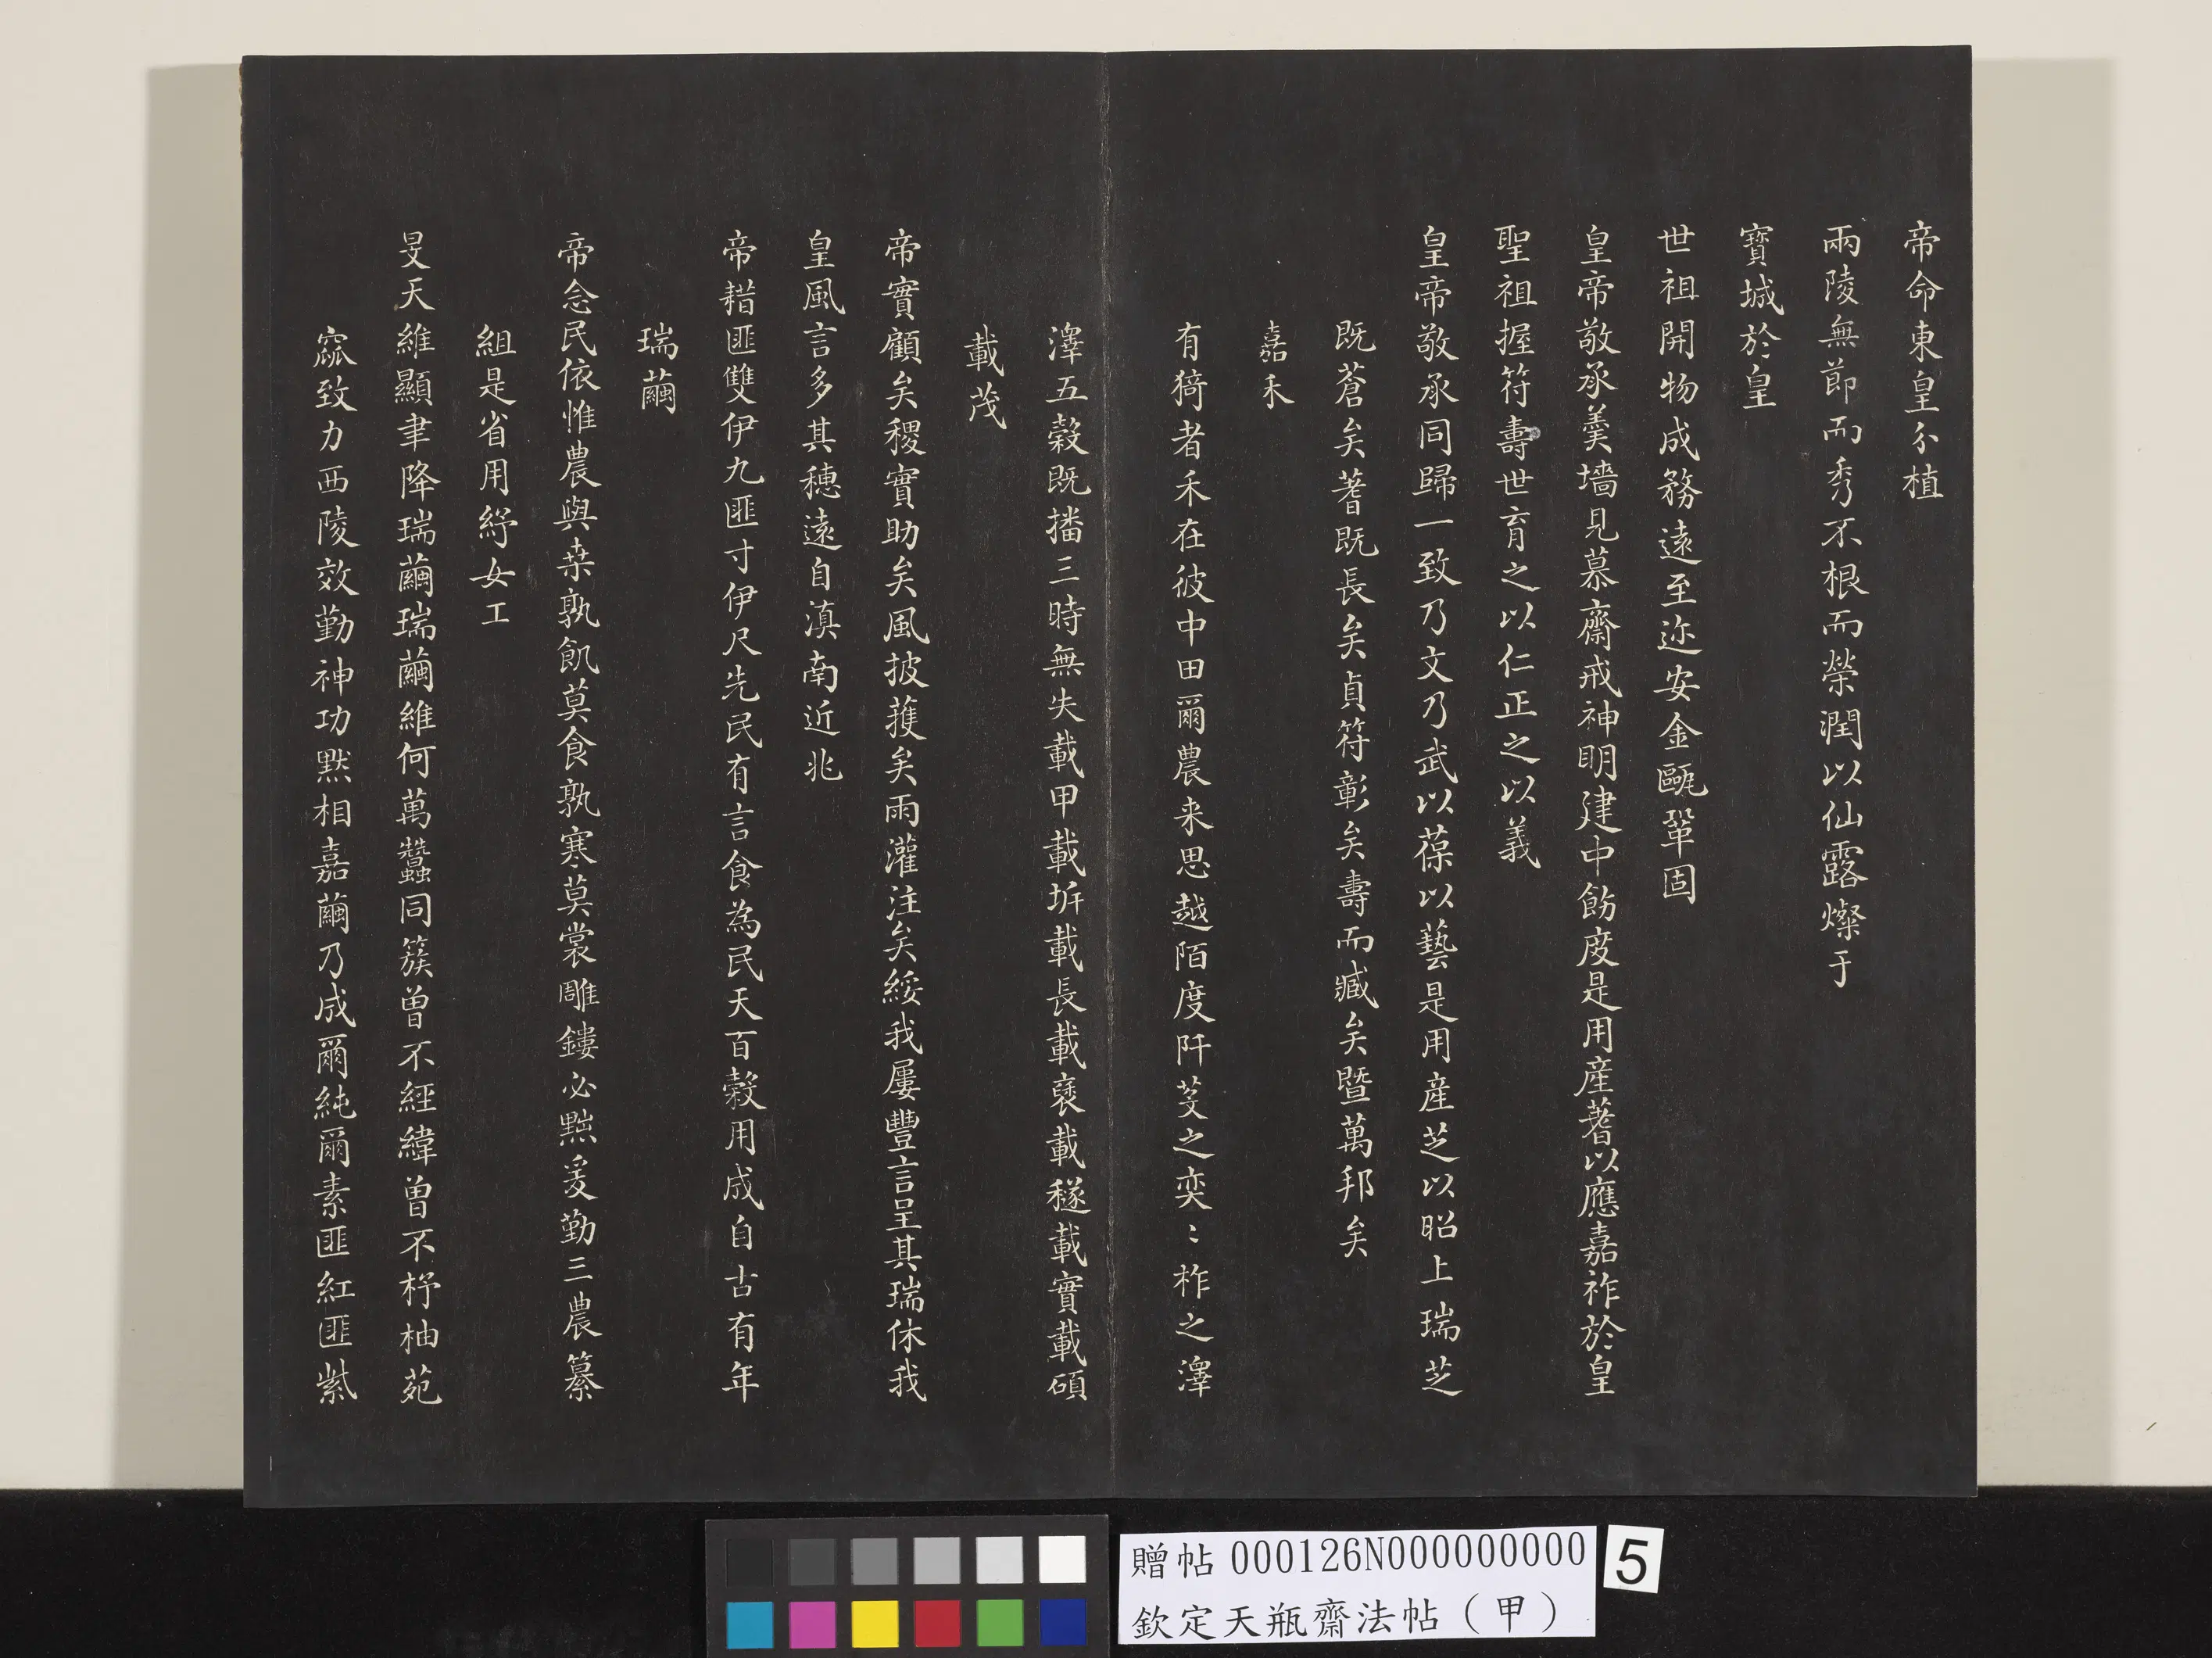 帝命東皇分植
兩陵無節而秀不根而榮潤以仙露燦于
寶城於皇
世祖開物成務遠至迩安金甌鞏固
皇帝敬承羹墻見慕齋戒神明建中飭度是用產蓍以應嘉祚於皇
聖祖握符壽世育之以仁正之以義
皇帝敬承同歸一致乃文乃武以葆以藝是用產芝以昭上瑞芝
既蒼矣蓍既長矣貞符彰矣壽而臧矣暨萬邦矣
嘉禾
有猗者禾在彼中田爾農来思越陌度阡芟之奕〻柞之澤
澤五穀既播三時無失載甲載坼載長載襃載穟載實載碩
載茂
帝實顧矣稷實助矣風披蓷矣雨灌注矣綏我屢豐言呈其瑞休我
皇風言多其穗遠自滇南近兆
帝耤匪雙伊九匪寸伊尺先民有言食為民天百穀用成自古有年
瑞繭
帝念民依惟農與桒孰飢莫食孰寒莫裳雕鏤必黜爰勤三農纂
組是省用紓女工
旻天維顯聿降瑞繭瑞繭維何萬蠶同簇曾不經緯曾不杼柚苑
窳致力西陵效勤神功黙相嘉繭乃成爾純爾素匪紅匪紫
贈帖 000126N000000000
欽定天瓶齋法帖（甲）
5